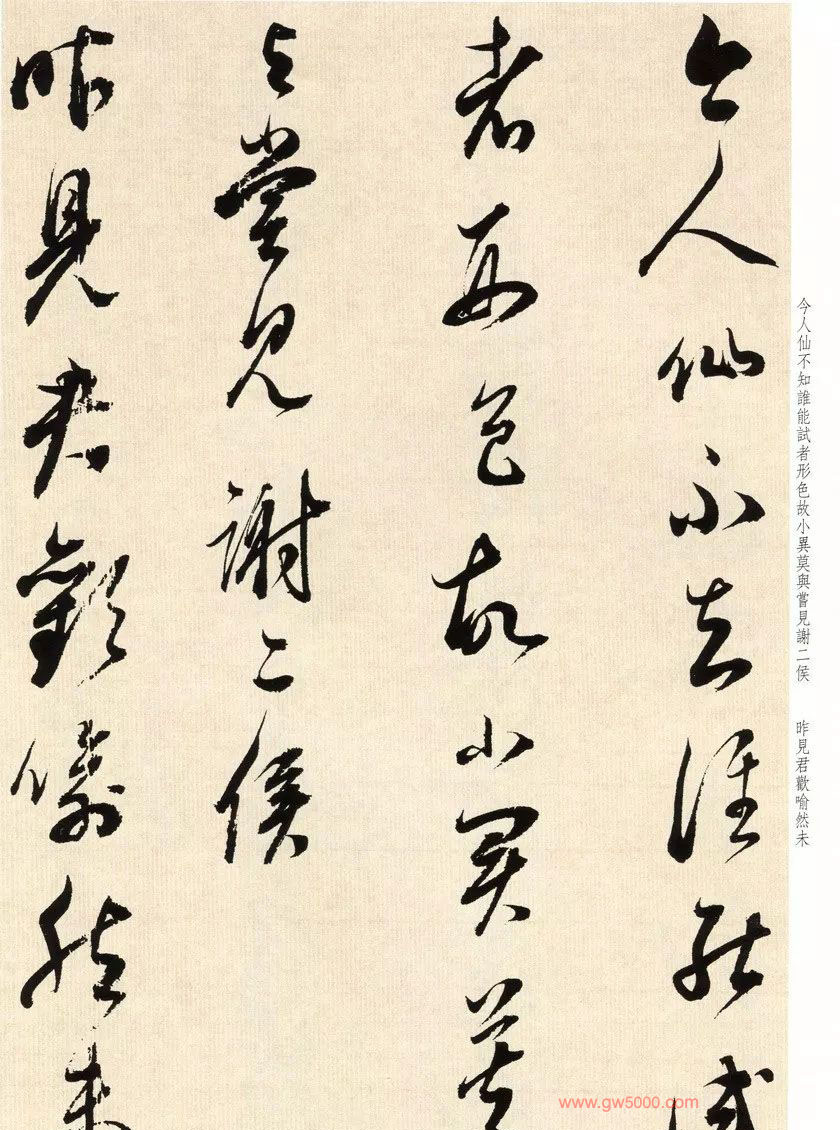 今人仙不知誰能試
者形色故小異莫
與嘗見謝二侯
昨見君歡喻然未
今人仙不知誰能試者形色故小異莫與嘗見謝二侯　昨見君歡喻然未
www.gw5000.com